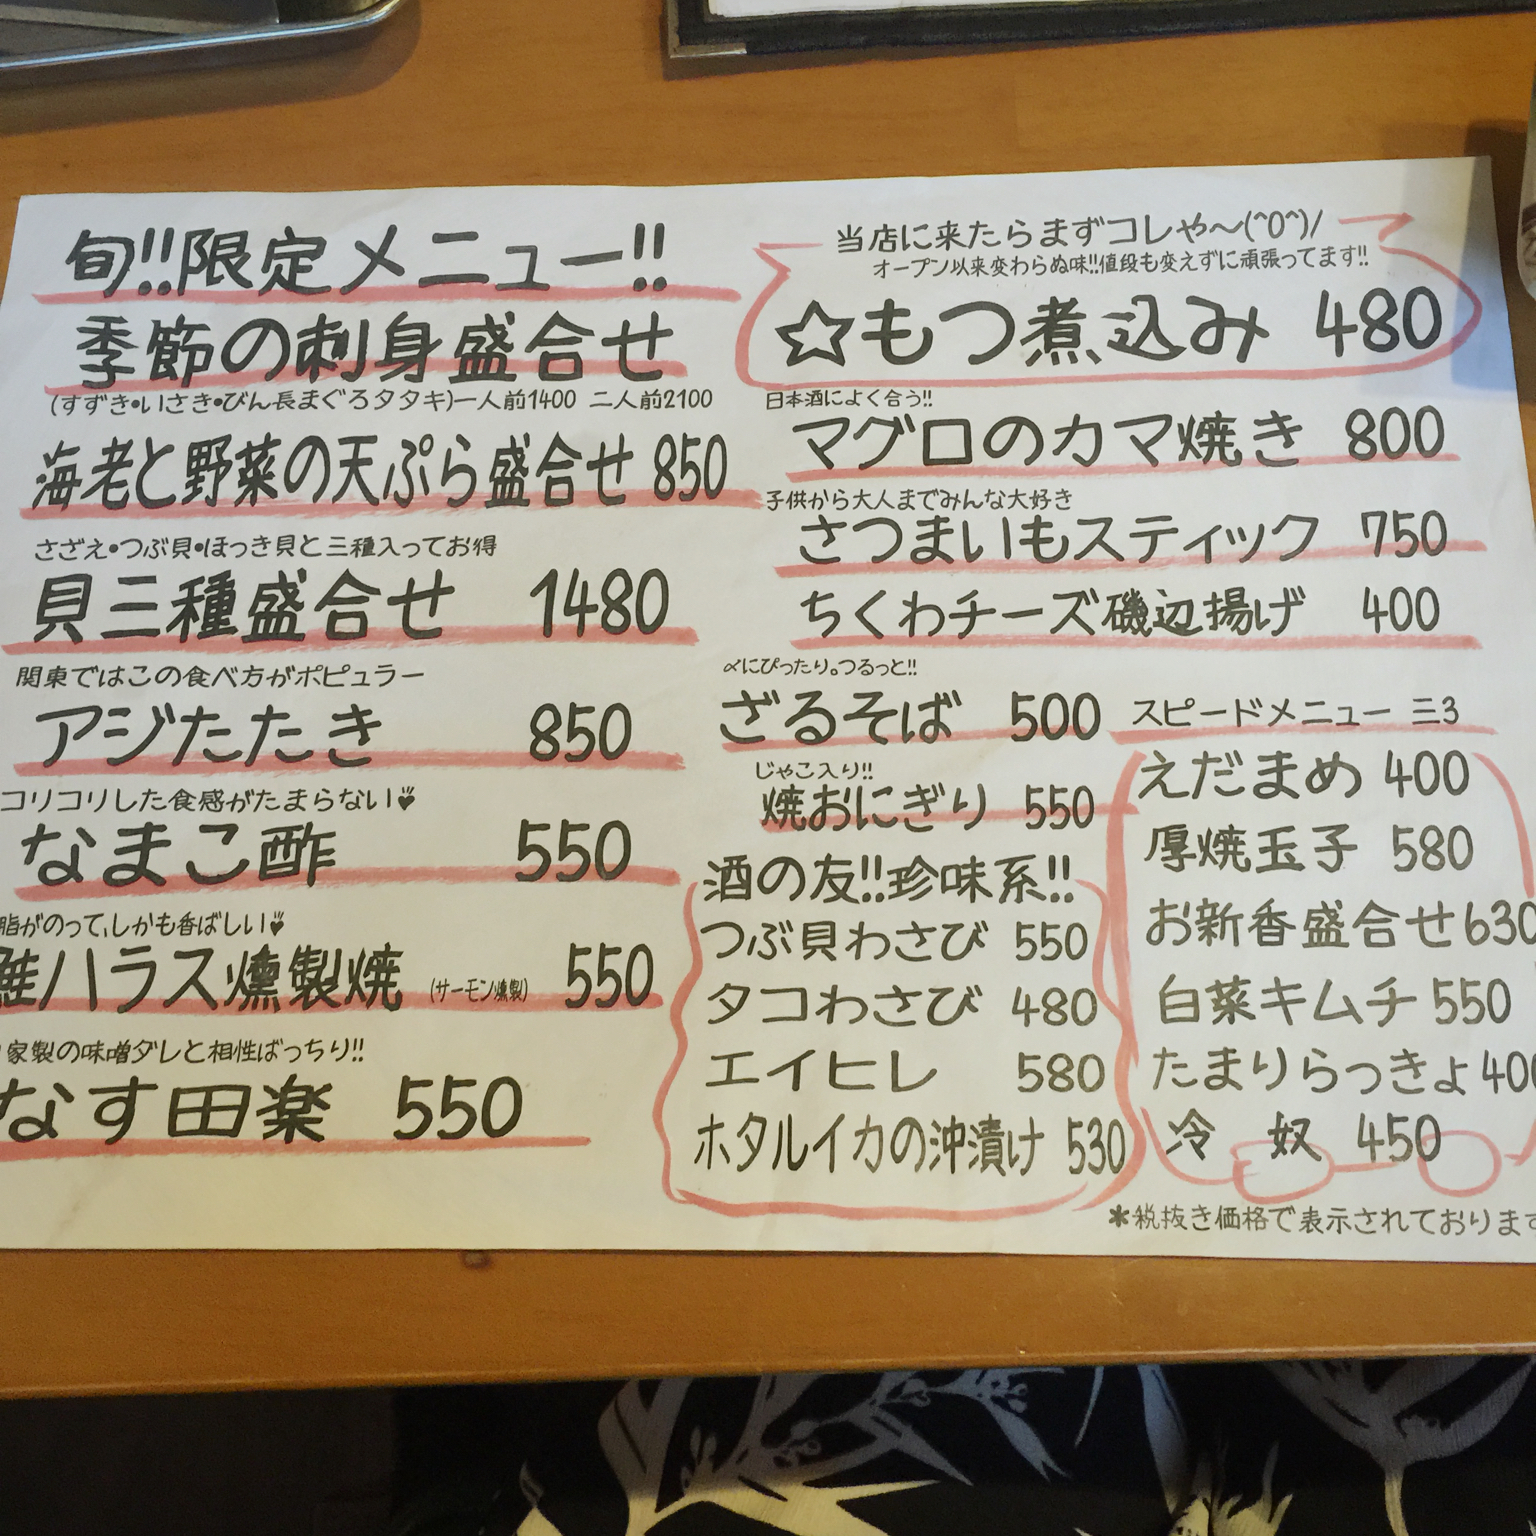 旬!!限定メニュー!!
季節の刺身盛合せ
(すずき•いさき•びん長まぐろタタキ)一人前1400 二人前2100
海老と野菜の天ぷら盛合せ 850
さざえ•つぶ貝•ほっき貝と三種入ってお得
貝三種盛合せ 1480
関東ではこの食べ方がポピュラー
アジたたき 850
コリコリした食感がたまらない
なまこ酢 550
脂がのって、しかも香ばしい
鮭ハラス燻製焼 (サーモン燻製) 550
家製の味噌ダレと相性ばっちり!!
なす田楽 550
当店に来たらまずコレや〜(^O^)/
オープン以来変わらぬ味!!値段も変えずに頑張ってます!!
☆もつ煮込み 480
日本酒によく合う!!
マグロのカマ焼き 800
子供から大人までみんな大好き
さつまいもスティック 750
ちくわチーズ磯辺揚げ 400
〆にぴったり。つるっと!!
ざるそば 500
じゃこ入り!!
焼おにぎり 550
酒の友!!珍味系!!
つぶ貝わさび 550
タコわさび 480
エイヒレ 580
ホタルイカの沖漬け 530
スピードメニュー 三3
えだまめ 400
厚焼玉子 580
お新香盛合せ 630
白菜キムチ 550
たまりらっきょ 400
冷 奴 450
*税抜き価格で表示されております